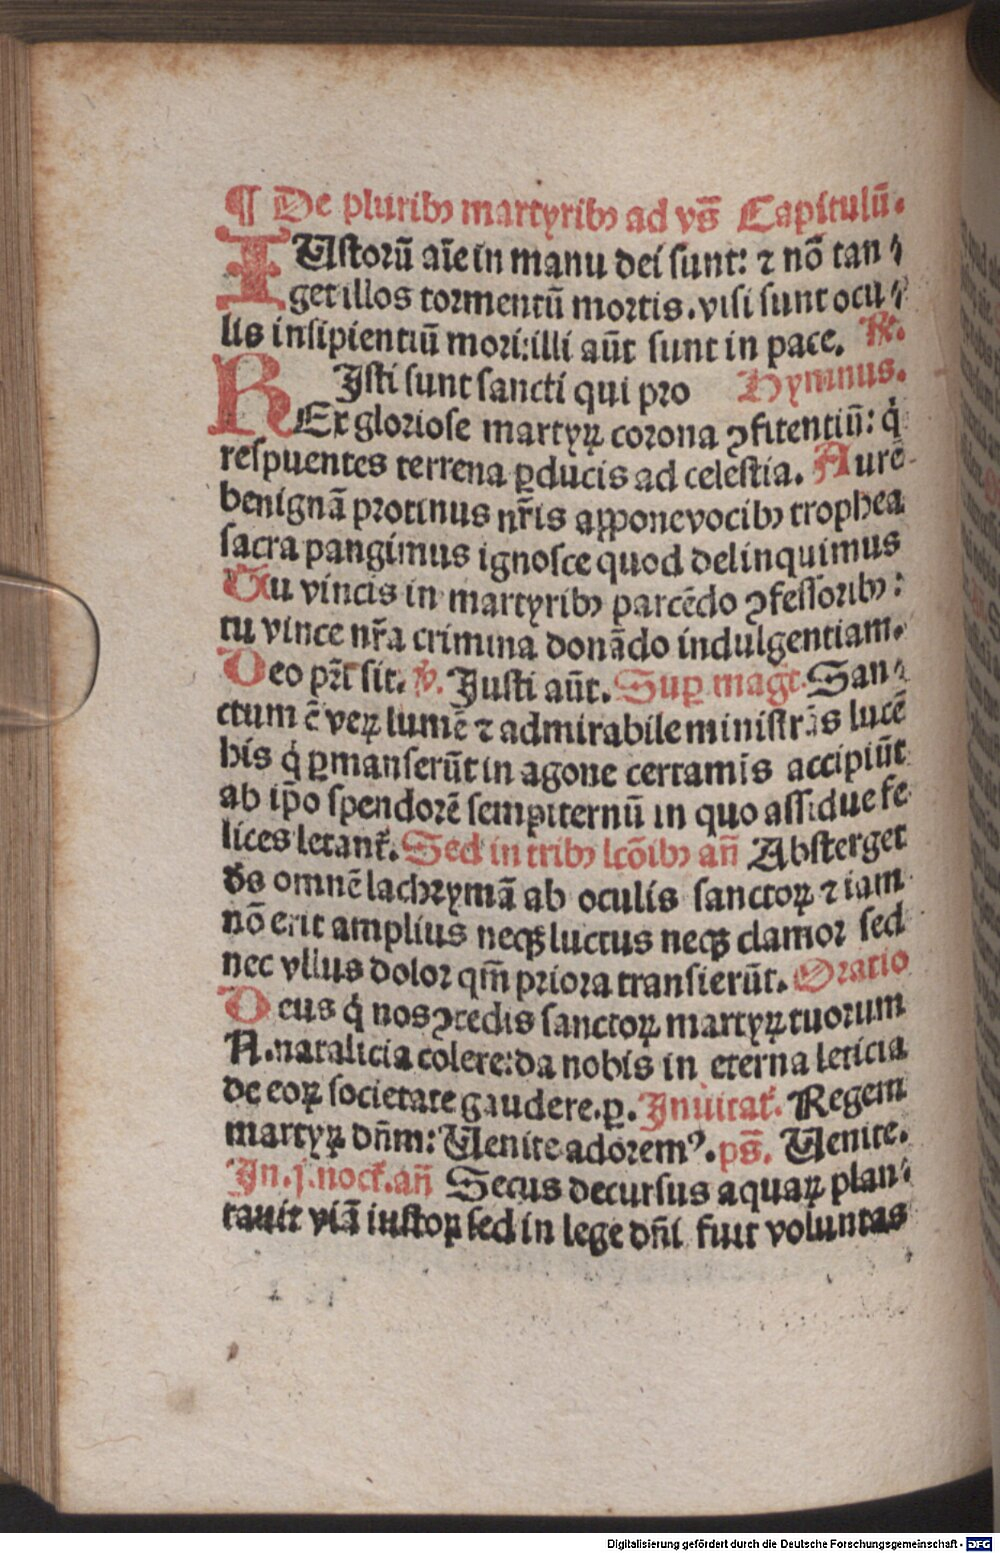 ¶ De pluribꝰ martyribꝰ ad vs̄ Capitulū.
IUstorū aīe in manu dei sunt: ⁊ nō tan⸗
get illos tormentū mortis. visi sunt ocu⸗
lis insipientiū mori: illi aūt sunt in pace. R̃.
Isti sunt sancti qui pro Hymnus.
REx gloriose martyꝝ corona ꝯfitentiū: q̇
respuentes terrena ꝑducis ad celestia. Aurē
benignā protinus nr̄is appone vocibꝰ trophea
sacra pangimus ignosce quod delinquimus
Tu vincis in martyribꝰ parcēdo ꝯfessoribꝰ:
tu vince nr̄a crimina donādo indulgentiam.
Deo pr̄i sit. v̄. Justi aūt. Suꝑ magt̄. San⸗
ctum ē veꝝ lumē ⁊ admirabile ministrās lucē
his q̇ ꝑmanserūt in agone certamis accipiūt
ab ip̄o spendorē sempiternū in quo assidue fe
lices letant᷑. Sed in tribꝰ lcōibꝰ an̄ Absterget
ds̄ omnē lachrymā ab oculis sanctoꝝ ⁊ iam
nō erit amplius neqꝫ luctus neqꝫ clamor sed
nec vllus dolor qm̄ priora transierūt. Oratio
Deus q̇ nos ꝯcedis sanctoꝝ martyꝝ tuorum
N. natalicia colere: da nobis in eterna leticia
de eoꝝ societate gaudere. ꝑ. Inuitat᷑. Regem
martyꝝ dn̄m: Uenite adoremꝰ. ps̄. Uenite.
In .j. noct᷑. an̄ Secus decursus aquaꝝ plan⸗
tauit viā iustoꝝ sed in lege dn̄i fuit voluntas
Digitalisierung gefördert durch die Deutsche Forschungsgemeinschaft - DFG